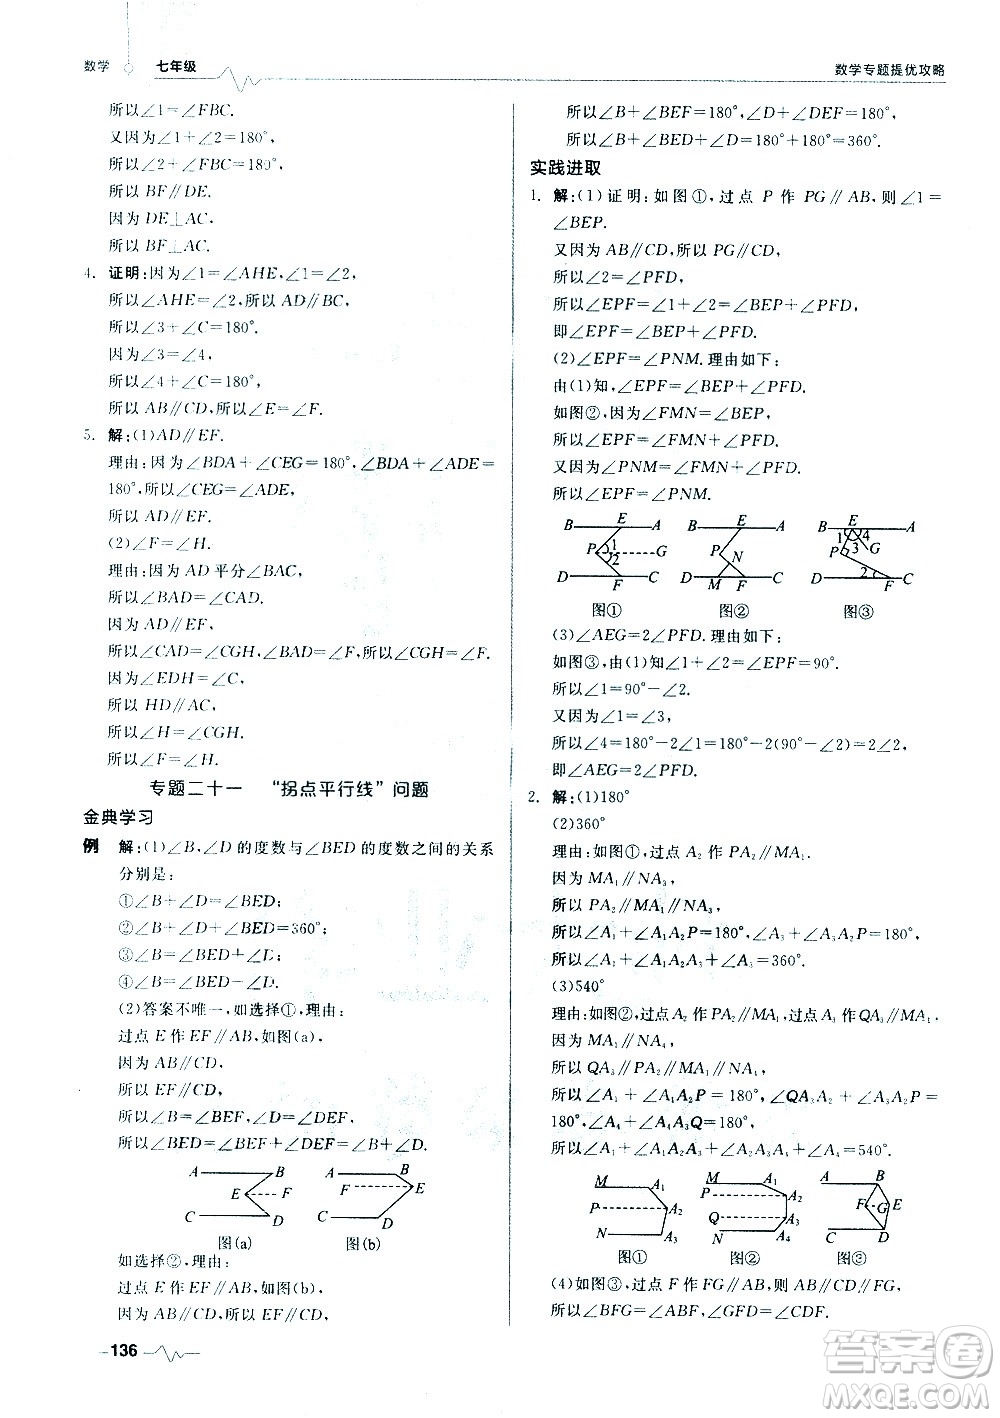 数学 七年级
数学专题提优攻略
所以∠1=∠FBC.
又因为∠1+∠2=180°,
所以∠2+∠FBC=180°,
所以 BF∥DE.
因为 DE⊥AC,
所以 BF⊥AC.
4. 证明:因为∠1=∠AHE,∠1=∠2,
所以∠AHE=∠2,所以 AD∥BC,
所以∠3+∠C=180°.
因为∠3=∠4,
所以∠4+∠C=180°,
所以 AB∥CD,所以∠E=∠F.
5. 解:(1)AD∥EF.
理由:因为∠BDA+∠CEG=180°,∠BDA+∠ADE=
180°,所以∠CEG=∠ADE,
所以 AD∥EF.
(2)∠F=∠H.
理由:因为 AD 平分∠BAC,
所以∠BAD=∠CAD.
因为 AD∥EF,
所以∠CAD=∠CGH,∠BAD=∠F,所以∠CGH=∠F.
因为∠EDH=∠C,
所以 HD∥AC,
所以∠H=∠CGH.
所以∠F=∠H.
专题二十一 “拐点平行线”问题
金典学习
例 解:(1)∠B,∠D 的度数与∠BED 的度数之间的关系
分别是:
①∠B+∠D=∠BED;
②∠B+∠D+∠BED=360°;
③∠B=∠D+∠BED;
④∠B=∠D-∠BED.
(2)答案不唯一,如选择①,理由:
过点 E 作 EF∥AB,如图(a),
因为 AB∥CD,
所以 EF∥CD,
所以∠B=∠BEF,∠D=∠DEF,
所以∠BED=∠BEF+∠DEF=∠B+∠D.
A B E F C D
图(a)
A B F E C D
图(b)
如选择②,理由:
过点 E 作 EF∥AB,如图(b),
因为 AB∥CD,所以 EF∥CD,
136
所以∠B+∠BEF=180°,∠D+∠DEF=180°,
所以∠B+∠BED+∠D=180°+180°=360°.
实践进取
1. 解:(1)证明:如图①,过点 P 作 PG∥AB,则∠1=
∠BEP.
又因为 AB∥CD,所以 PG∥CD,
所以∠2=∠PFD,
所以∠EPF=∠1+∠2=∠BEP+∠PFD,
即∠EPF=∠BEP+∠PFD.
(2)∠EPF=∠PNM.理由如下:
由(1)知,∠EPF=∠BEP+∠PFD.
如图②,因为∠FMN=∠BEP,
所以∠EPF=∠FMN+∠PFD.
又因为∠PNM=∠FMN+∠PFD,
所以∠EPF=∠PNM.
B E A P 1 G 2 D F C
图①
B E A P N D M F C
图②
B E A 1 4 P 3 G D 2 F C
图③
(3)∠AEG=2∠PFD.理由如下:
如图③,由(1)知∠1+∠2=∠EPF=90°,
所以∠1=90°-∠2.
又因为∠1=∠3,
所以∠4=180°-2∠1=180°-2(90°-∠2)=2∠2,
即∠AEG=2∠PFD.
2. 解:(1)180°
(2)360°
理由:如图①,过点 A₂ 作 PA₂∥MA₁.
因为 MA₁∥NA₃,
所以 PA₂∥MA₁∥NA₃,
所以∠A₁+∠A₁A₂P=180°,∠A₃+∠A₃A₂P=180°,
所以∠A₁+∠A₁A₂A₃+∠A₃=360°.
(3)540°
理由:如图②,过点 A₂ 作 PA₂∥MA₁,过点 A₃ 作 QA₃∥MA₁.
因为 MA₁∥NA₄,
所以 QA₃∥PA₂∥MA₁∥NA₄,
所以∠A₁+∠A₁A₂P=180°,∠QA₃A₂+∠A₃A₂P=
180°,∠A₄+∠A₄A₃Q=180°,
所以∠A₁+∠A₁A₂A₃+∠A₂A₃A₄+∠A₄=540°.
M A₁ P A₂ N A₃
图①
M A₁ P A₂ Q A₃ N A₄
图②
A B F G E C D
图③
(4)如图③,过点 F 作 FG∥AB,则 AB∥CD∥FG,
所以∠BFG=∠ABF,∠GFD=∠CDF.
答案圈
MXQE.COM